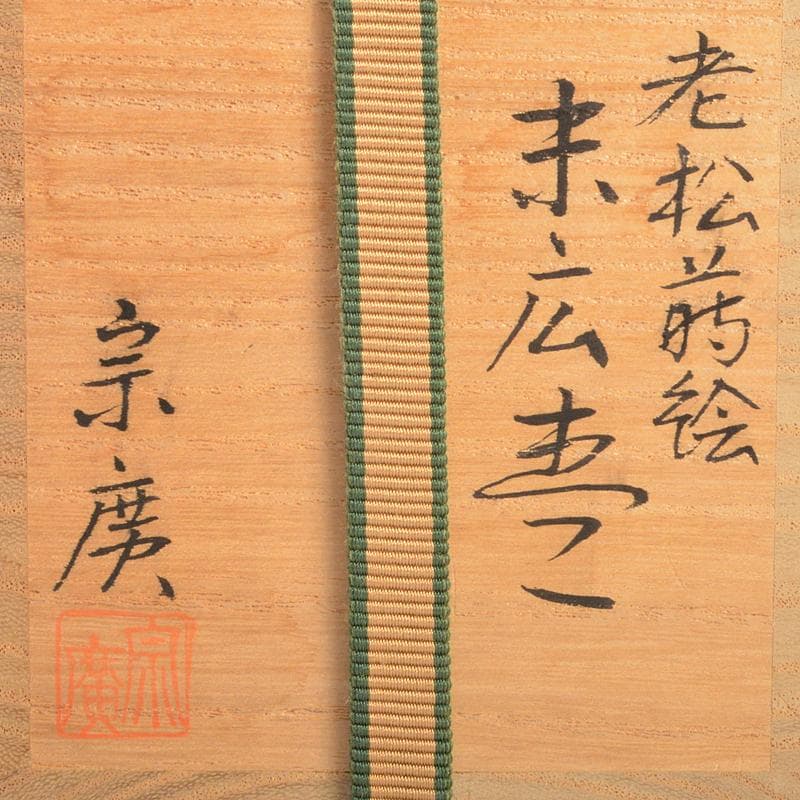 老松蒔絵
末広棗
宗廣
宗廣